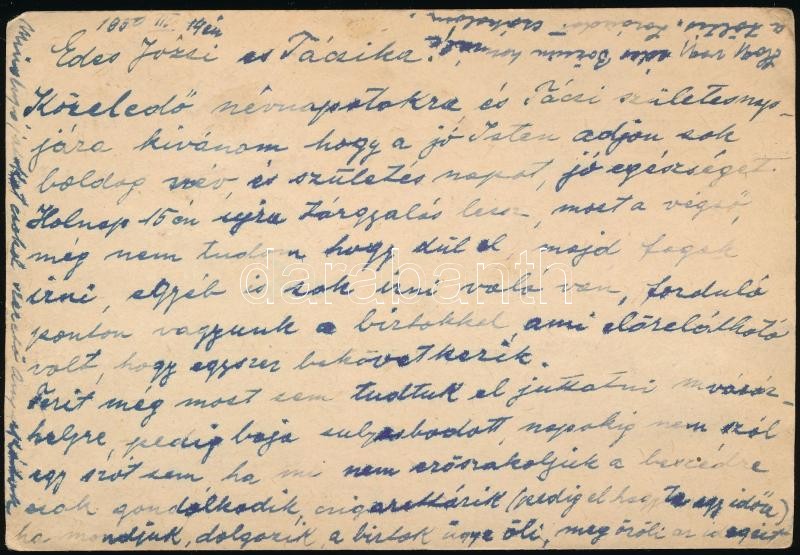 1950 III. 14én
Edes Józsi és Tácsika!
Közeledő névnapotokra és Tácsi születésnap-
jára kivánom hogy a jó Isten adjon sok
boldog név, és születés napot, jó egészséget.
Holnap 15én ujra tárgyalás lesz, most a végső,
még nem tudom hogy dül el, majd fogok
irni, egyéb is sok irni való van, forduló
ponton vagyunk a birtokkel, ami előrelátható
volt, hogy egyszer bekövetkezik.
Ferit még most sem tudtuk eljuttatni mvásár-
helyre, pedig baja sulyosbodott, napokig nem szól
egy szót sem, ha mi nem erőszakoljuk a beszédre
csak gondolkodik, cigarettázik (pedig elhagyta egy időre)
ha mondjuk, dolgozik, a birtok ügye öli, megőröli az idegeit
darabanth